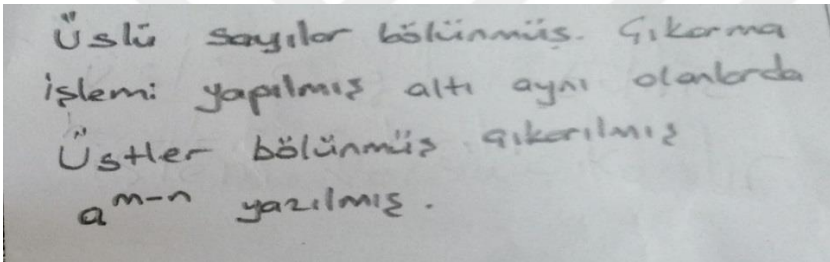 Üslü sayılar bölünmüş. Çıkarma
işlemi yapılmış altı aynı olanlarda
Üstler bölünmüş çıkarılmış
a^m-n yazılmış.